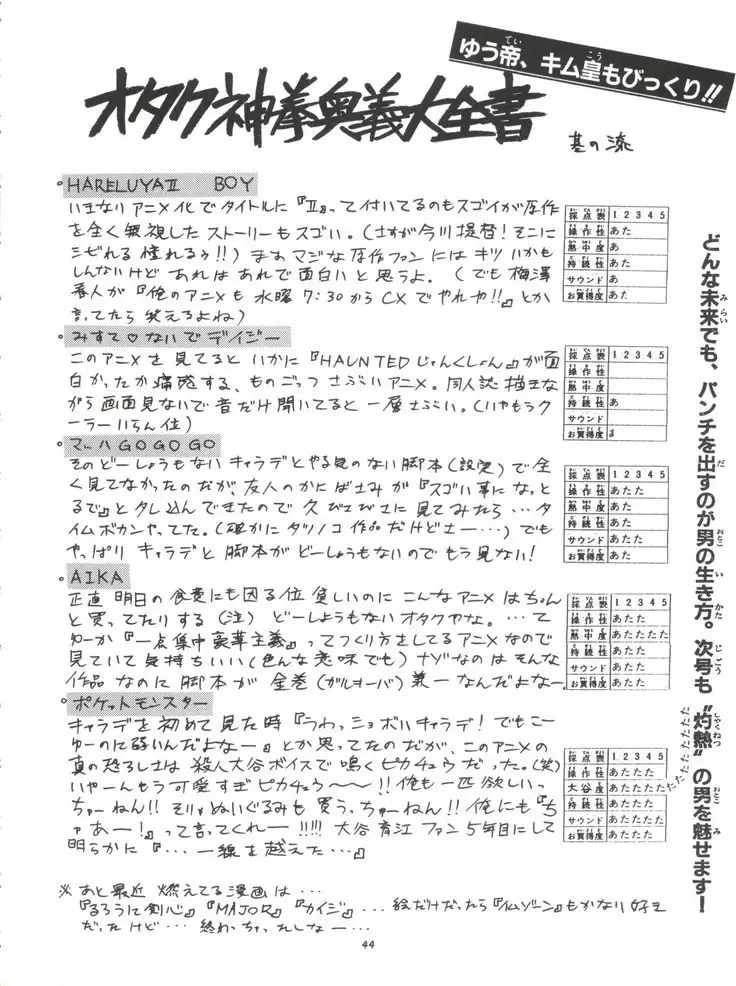 ゆう帝、キム皇もびっくり!!
オタク神拳奥義大全書
基の漆
HARELUYAⅡ BOY
いきなりアニメ化でタイトルに『Ⅱ』って付いてるのもスゴイが原作
を全く無視したストーリーもスゴい。(さすが今川提督!そこに
シビれる憧れるゥ!!)まぁマジな原作ファンにはキツいかも
しんないけどあれはあれで面白いと思うよ。(でも梅澤
春人が『俺のアニメも水曜7:30からCXでやれや!!』とか
言ってたら笑えるよね)
採点表 1 2 3 4 5
操作性 あた
熱中度 あ
持続性 あた
サウンド あ
お買得度 あた
みすて♡ないでデイジー
このアニメを見てるといかに『HAUNTEDじゃんくしょん』が面
白かったか痛感する、ものごっつさぶいアニメ。同人誌描きな
がら画面見ないで音だけ聞いてると一層さぶい。(いやもうク
ーラーいらん位)
採点表 1 2 3 4 5
操作性
熱中度
持続性 あ
サウンド
お買得度
マッハGOGOGO
そのどーしょうもないキャラデとやる気のない脚本(設定)で全
く見てなかったのだが、友人のかにばさみが『スゴい事になっと
るで』とタレ込んできたので久びさびさに見てみたら…タ
イムボカンやってた。(確かにタツノコ作品だけどさー…)でも
やっぱりキャラデと脚本がどーしょうもないのでもう見ない!
採点表 1 2 3 4 5
操作性 あたた
熱中度 あた
持続性 あた
サウンド あた
お買得度 あた
AIKA
正直明日の食費にも困る位貧しいのにこんなアニメはちゃん
と買ってたりする(注)どーしようもないオタクやな。…て
ゆーか『一点集中豪華主義』ってつくり方をしてるアニメなので
見ていて気持ちいい(色んな意味でも)ナゾなのはそんな
作品なのに脚本が全巻(ガルキーバ)兼一なんだよなー
採点表 1 2 3 4 5
操作性 あたた
熱中度 あたたたた
持続性 あたた
サウンド あたた
お買得度 あたたた
ポケットモンスター
キャラデを初めて見た時『うわっショボいキャラデ!でもこー
ゆーのに弱いんだよなー』とか思ってたのだが、このアニメの
真の恐ろしさは殺人大谷ボイスで鳴くピカチュウだった。(笑)
いやーんもう可愛すぎピカチュウ〜〜!!俺も一匹欲しいっ
ちゅーねん!!そりゃぬいぐるみも買うっちゅーねん!!俺にも『ち
ゃあー!』って言ってくれー!!!!!大谷育江ファン5年目にして
明らかに『…一線を越えた…』
採点表 1 2 3 4 5
操作性 あたたた
大谷度 あたたたたたたたたたたたたたた
持続性 あたたた
サウンド あたたた
お買得度 あたたたた
※あと最近燃えてる漫画は…
『るろうに剣心』『MAJOR』『カイジ』…絵だけだったら『仏ゾーン』もかなり好き
だったけど…終わっちゃったしなー…
どんな未来でも、パンチを出すのが男の生き方。次号も“灼熱”の男を魅せます!
44